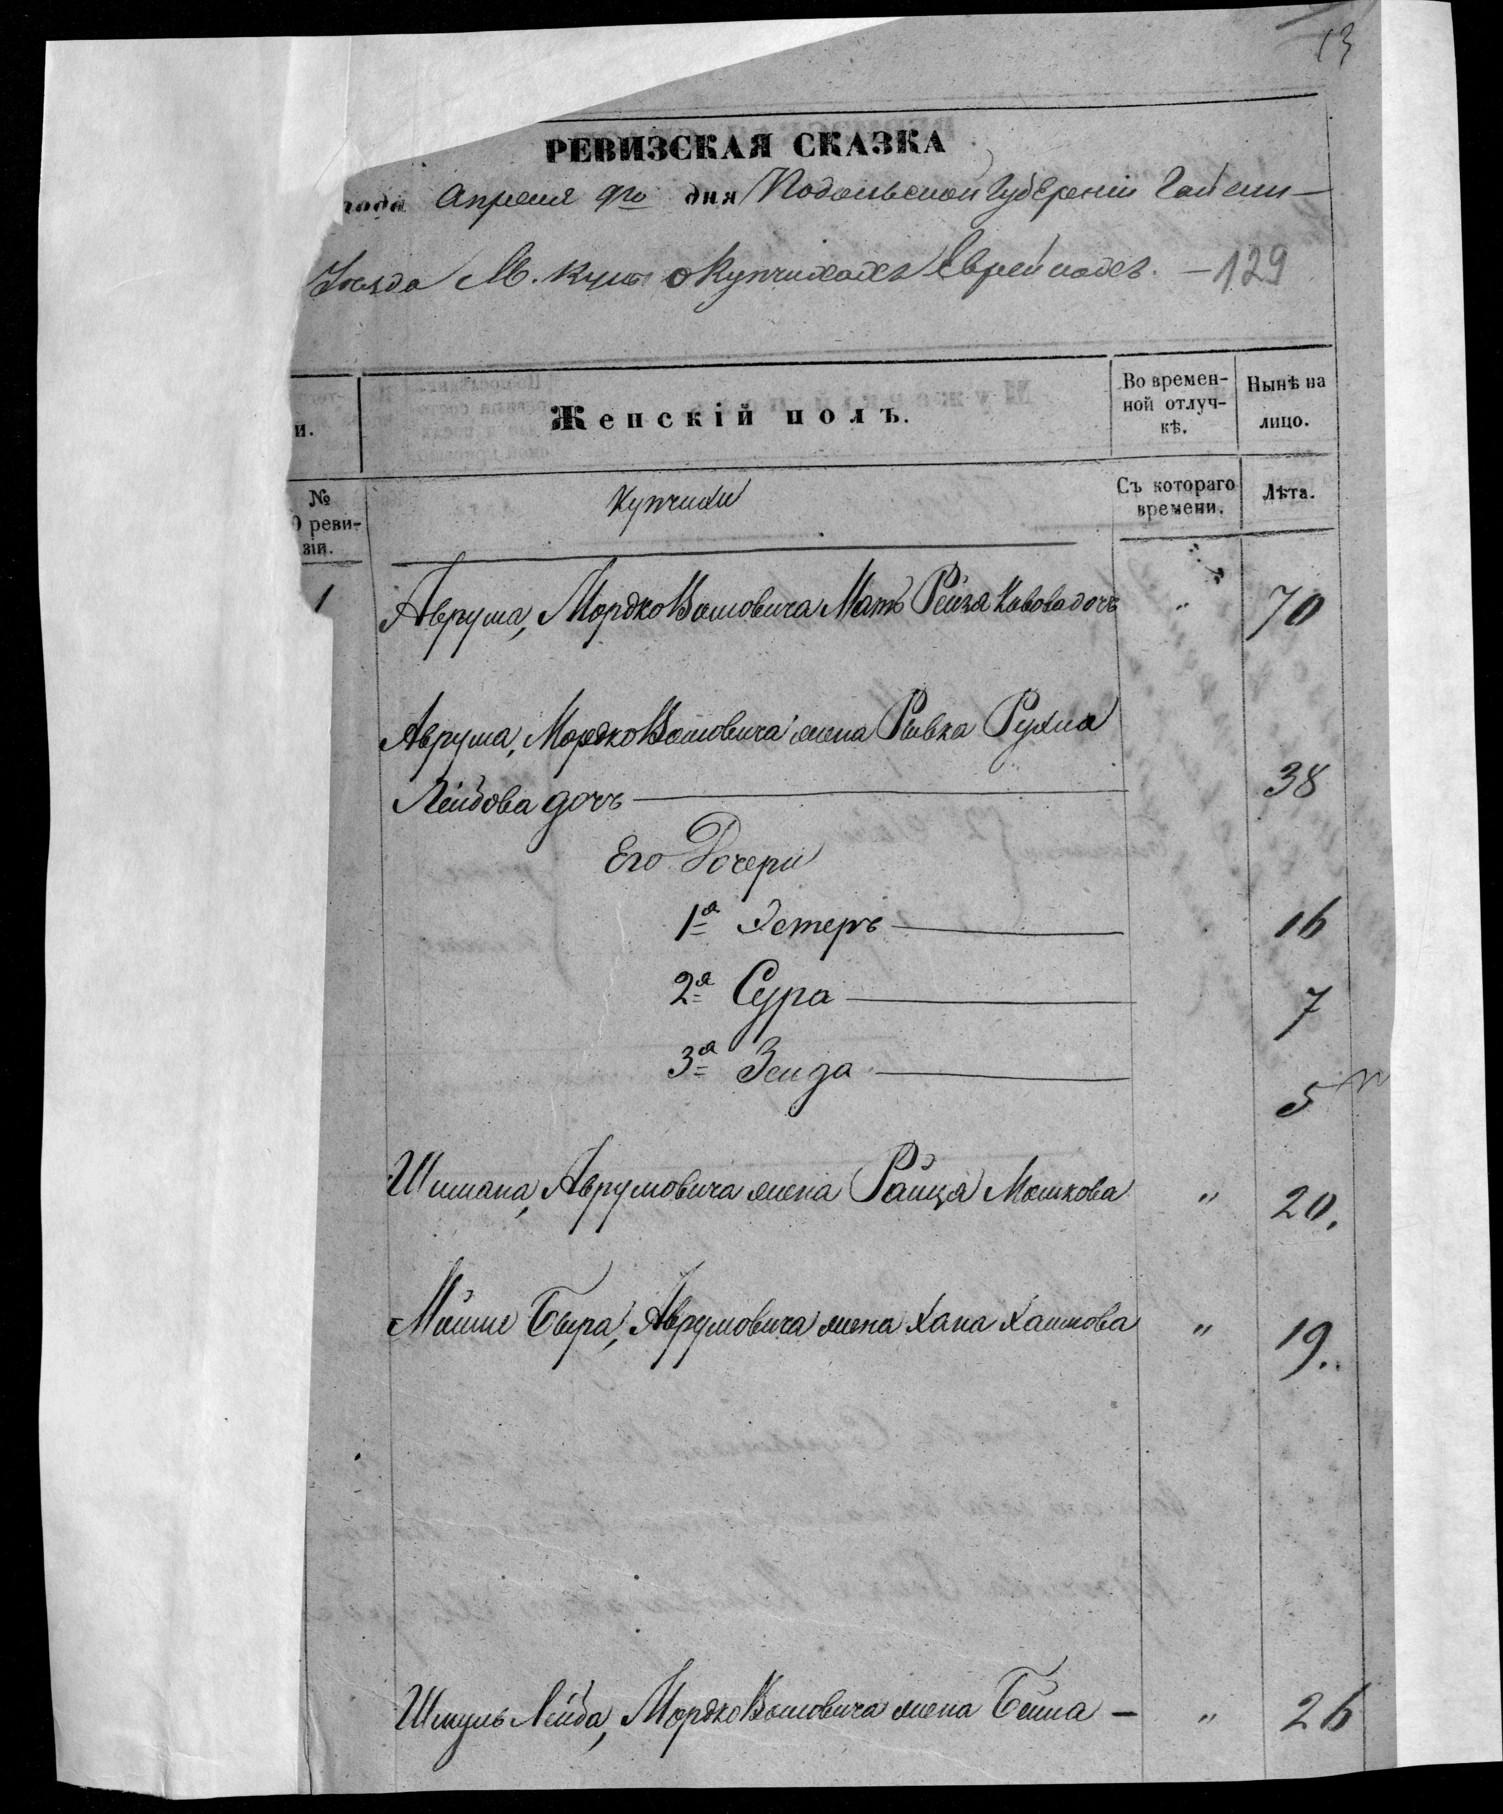 13
РЕВИЗСКАЯ СКАЗКА
года апреля 9го дня Подольской Губернии Гайсин-
Уезда М. Куны о Купчихахъ Еврейкахъ. - 129
и.
Женскій полъ.
Во времен-
ной отлуч-
кѣ.
Нынѣ на
лицо.
№
реви-
зіи.
Купчихи
Съ котораго
времени.
Лѣта.
1 Аврума, Мордковича Мать Рейза дочь " 70
Аврума, Мордковича жена Рывка Рухля
Лейбова дочь 38
Его Дочери
1я Эстеръ 16
2я Сура 7
3я Зельда 5
Шимана, Аврумовича жена Раица Мошкова " 20.
Мошие Бера, Аврумовича жена Хана Хаимова " 19.
Шмуль Лейба, Мордковича жена Бейла - " 26